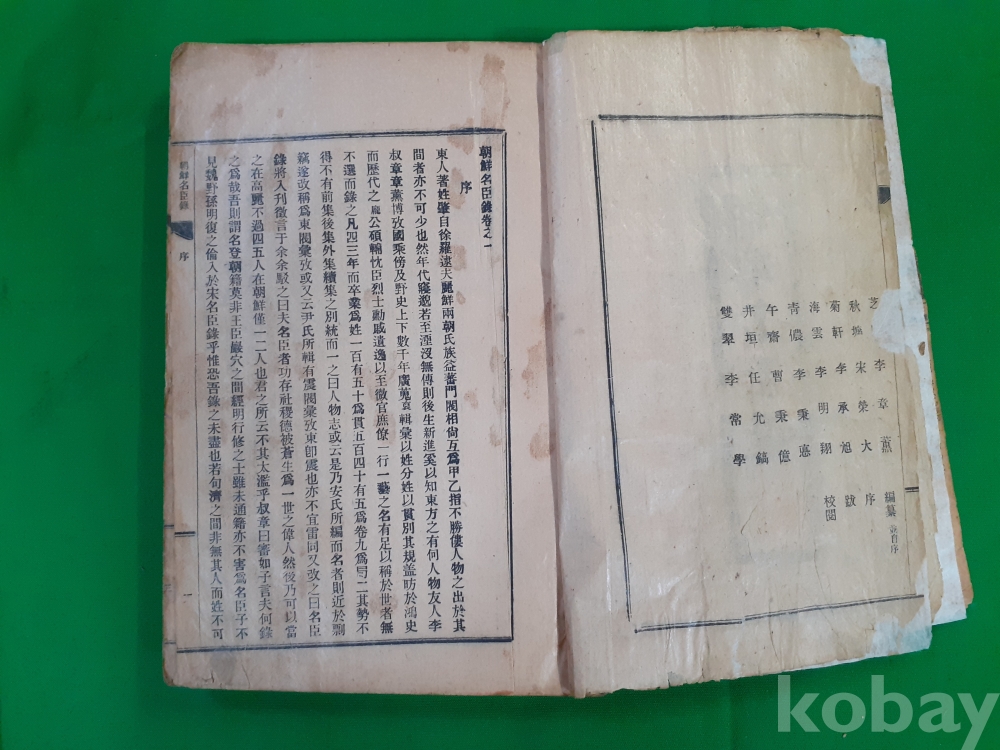 芝 李章薰 編纂 並自序
秋 宋榮大 序
菊軒 李承旭 跋
海雲 李明翔 校閱
靑儂 李秉憙
午齋 曹秉億
井垣 任允鎬
雙翠 李常學
朝鮮名臣錄卷之一
序
東人著姓肇自徐羅逮夫麗鮮兩朝氏族益蕃門閥相尙互爲甲乙指不勝僂人物之出於其
間者亦不可少也然年代寢邈若至湮沒無傳則後生新進奚以知東方之有何人物友人李
叔章章薰博攷國乘傍及野史上下數千年廣蒐裒輯彙以姓分姓以貫別其規盖昉於鴻史
而歷代之龐公碩輔忱臣烈士勳戚遺逸以至微官庶僚一行一藝之名有足以稱於世者無
不選而錄之凡四三年而卒業爲姓一百有五十爲貫五百四十有五爲卷九爲局二其勢不
得不有前集後集外集續集之別統而一之曰人物志或云是乃安氏所編而名者則近於剽
竊遂改稱爲東閣彙攷或又云尹氏所輯有震閥彙攷東卽震也亦不宜雷同又改之曰名臣
錄將入刊徵言于余余駁之曰夫名臣者功存社稷德被蒼生爲一世之偉人然後乃可以當
之在高麗不過四五人在朝鮮僅一二人也君之所云不其太濫乎叔章曰審如子言夫何錄
之爲哉吾則謂名登朝籍莫非王臣巖穴之間經明行修之士雖未通籍亦不害爲名臣子不
見魏野孫明復之倫入於宋名臣錄乎惟恐吾錄之未盡也若句濟之間非無其人而姓不可
朝鮮名臣錄 序 一
kobay